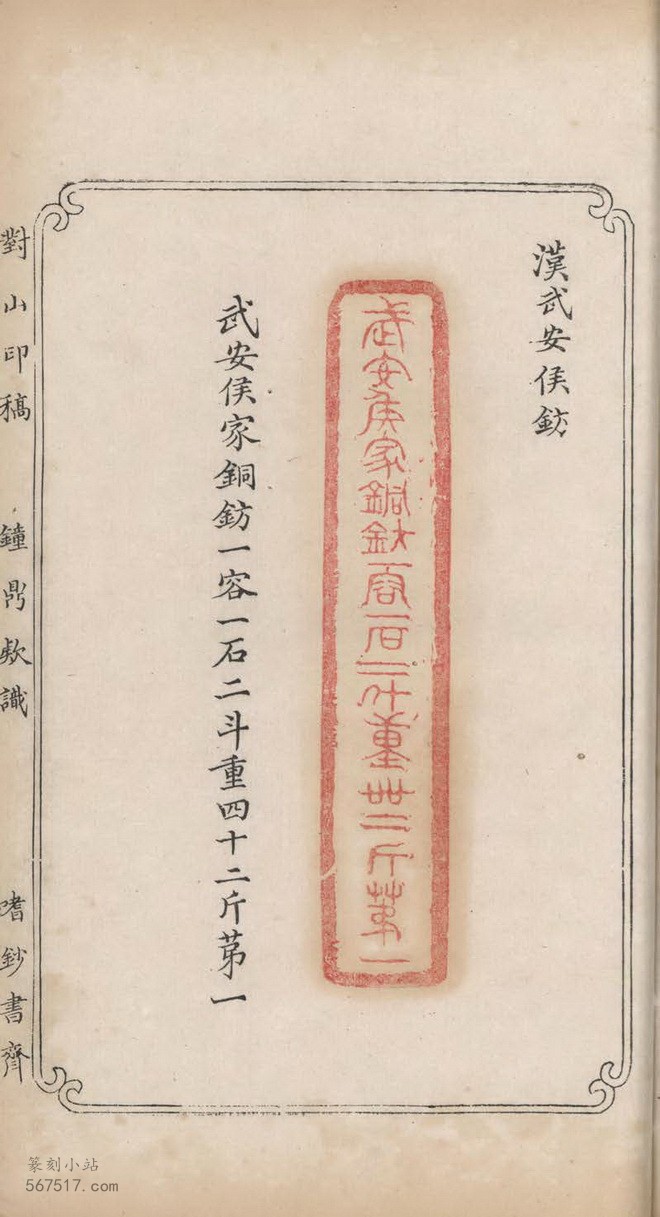 漢武安侯鈁
武安侯家銅鈁一容一石二斗重卌二斤苐一
武安侯家銅鈁一容一石二斗重四十二斤苐一
對山印稿 鐘鼎欵識 嗜鈔書齋
篆刻小站
567517.com